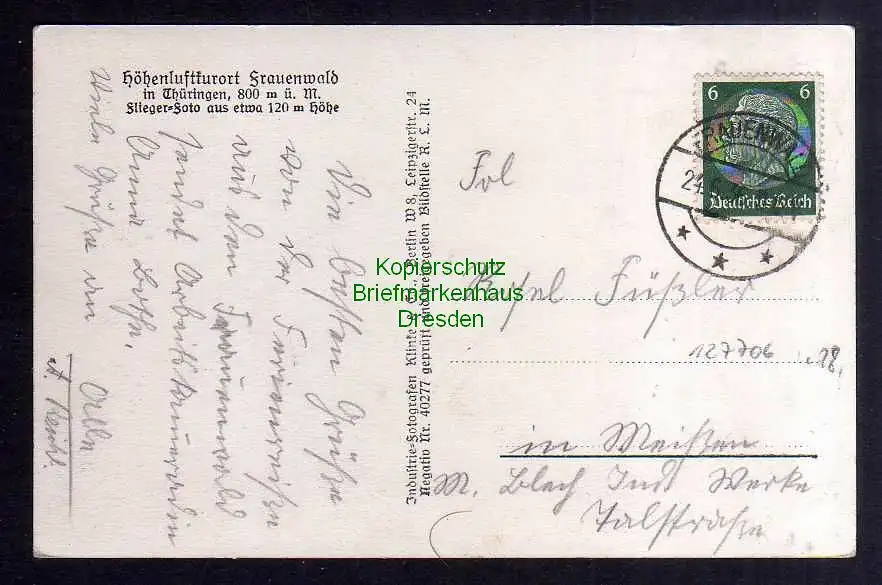 Höhenluftkurort Frauenwald
in Thüringen, 800 m ü. M.
Flieger-Foto aus etwa 120 m Höhe
Die besten Grüße
von der Ferienreise
aus dem Frauenwald
sendet
Anna
Viele Grüße an
Alle
Industrie-Fotografen Klinke & Co., Berlin W 8, Leipzigerstr. 24
Negativ Nr. 40277 geprüft und freigegeben Bildstelle R. L. M.
6 6
Deutsches Reich
FRAUENW
24
Frl
Füßler
127706
in Meißen
M. Blech Ind Werke
Talstraße
Kopierschutz
Briefmarkenhaus
Dresden